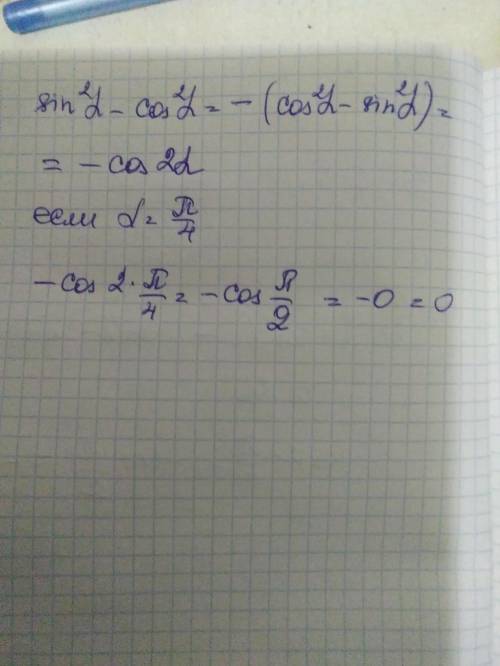 sin²α - cos²α = -(cos²α - sin²α) =
= -cos 2α
если α = π/4
-cos 2·π/4 = -cos π/2 = -0 = 0